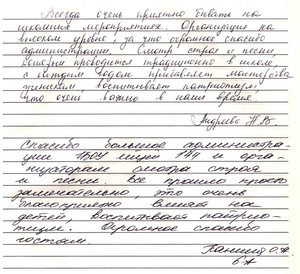 Всегда очень приятно бывать на
школьных мероприятиях. Организация на
высоком уровне, за что огромное спасибо
администрации. Смотр строя и песни,
который проводится традиционно в школе,
с каждым годом прибавляет мастерства
ученикам, воспитывает патриотизм,
что очень важно в наше время.
Спасибо большое администра-
ции ГБОУ лицей 144 и орга-
низаторам смотра строя
и песни. Все прошло просто
замечательно, это очень
благоприятно влияет на
детей, воспитывает патрио-
тизм. Огромное спасибо
гостям.